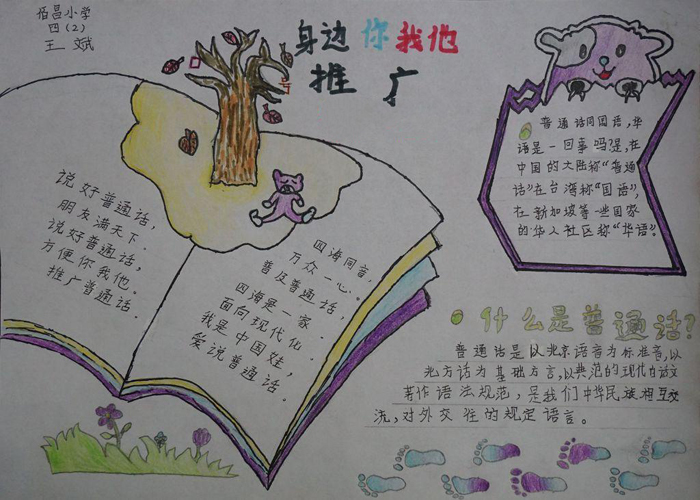 佰昌小学
四(2)
王斌
身边你我他
推广
口号
普通话同国语,华
语是一回事吗?是,在
中国的大陆称“普通
话”在台湾称“国语”,
在新加坡等一些国家
的华人社区称“华语”。
说好普通话,
朋友满天下.
说好普通话,
方便你我他。
推广普通话.
四海同音,
万众一心。
普及普通话,
四海是一家.
面向现代化,
我是中国娃,
爱说普通话。
什么是普通话?
普通话是以北京语音为标准音,以
北方话为基础方言,以典范的现代白话文
著作语法规范,是我们中华民族相互交
流,对外交往的规定语言。